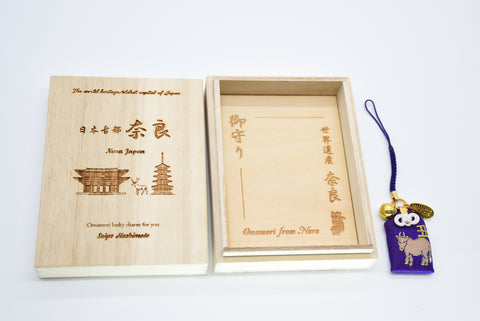 The world heritage/oldest capital of Japan
日本古都 奈良
Nara Japan
Omamori lucky charm for you
Seiya Hashimoto
御守り
世界遺産 奈良
Omamori from Nara